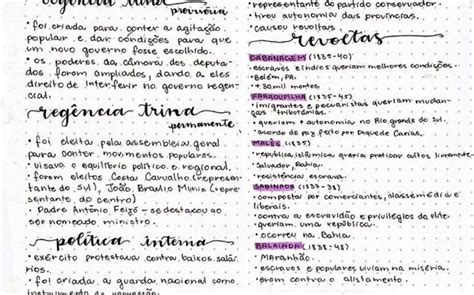 regência trina
provisória
• foi criada para conter a agitação
popular e dar condições para que
um novo governo fosse escolhido.
• os poderes da câmara dos deputa-
dos foram ampliados, dando a eles
direito de interferir no governo regen-
cial.
regência trina
permanente
• foi eleita pela assembleia geral
para conter movimentos populares.
• visava o equilíbrio político e regional.
• forem eleitos Costa Carvalho (represen-
tante do sul), João Braulio Muniz (repre-
sentante do centro)
• Padre Antônio Feijó – se destacou ao
ser nomeado ministro.
política interna
• exército protestava contra baixos salá-
rios.
• foi criada a guarda nacional como
instrumento de repressão.
• representante do partido conservador.
• tirou autonomia das províncias.
• causou revoltas.
revoltas
CABANAGEM (1835-40)
• escravos e índios queriam melhores condições.
• Belém, PA.
• +30 mil mortes
FARROUPILHA (1835-45)
• imigrantes e pecuaristas queriam mudan-
ças tributárias.
• queriam + autonomia no Rio grande do Sul.
• acordo de paz feito por Duque de Caxias.
MALÊS (1835)
• república islâmica queria praticar cultos livremente.
• Salvador, Bahia.
• resistência escrava.
SABINADA (1837-38)
• composta por comerciantes, classe média e
liberais.
• contra a escravidão e privilégios da elite.
• queriam uma república.
• ocorreu na Bahia
BALAIADA (1838-41)
• Maranhão.
• escravos e populares viviam na miséria.
• eram contra o alistamento.